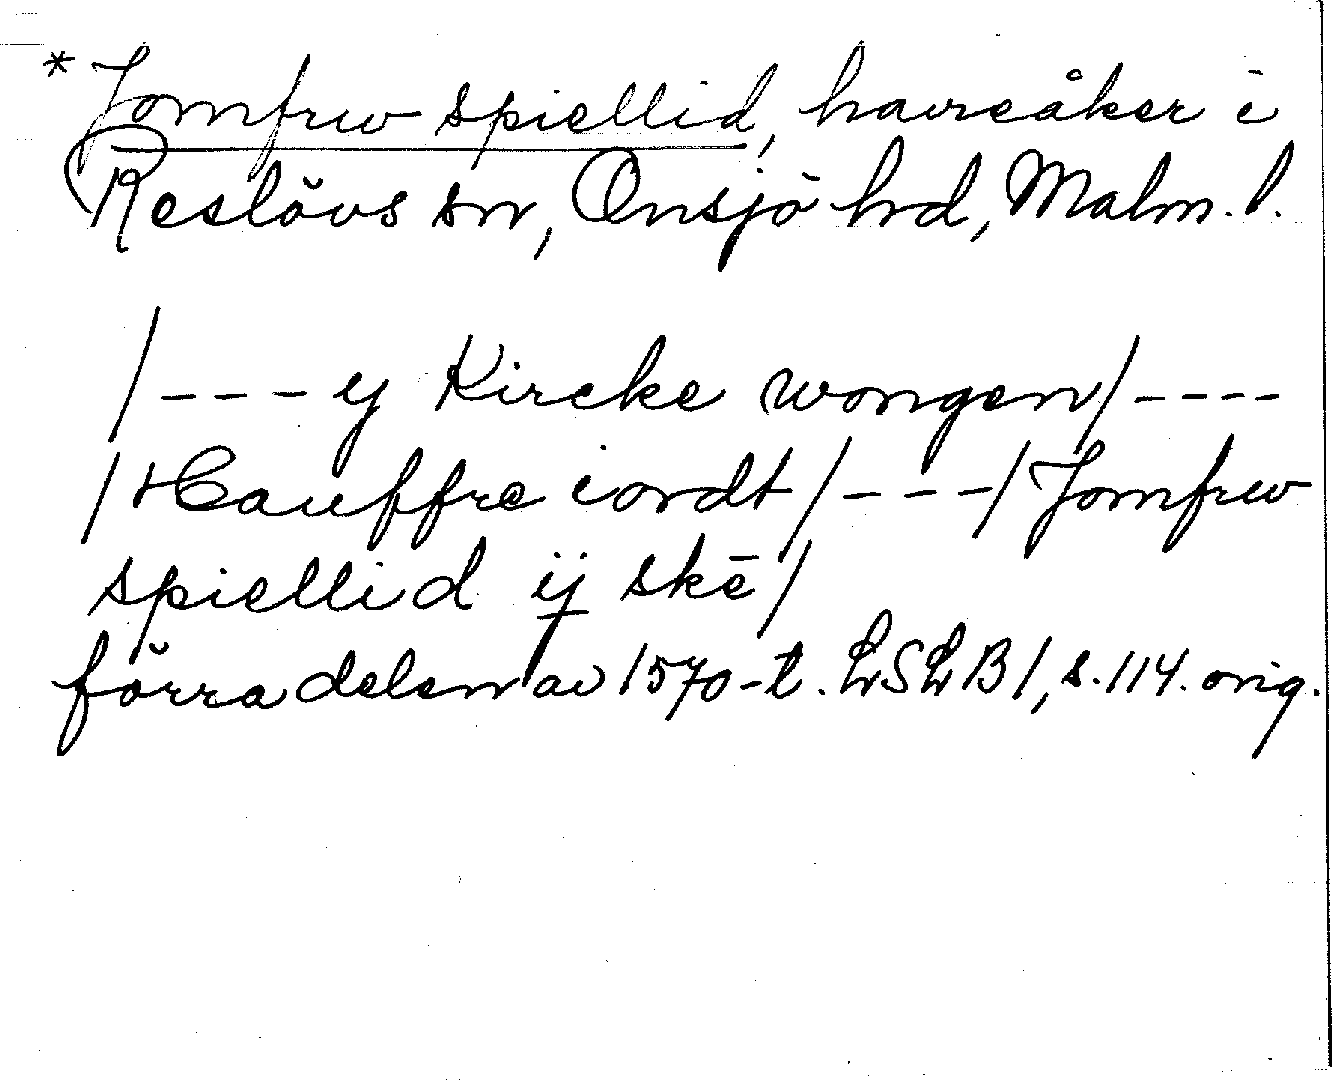 * Jomfrw spiellid, havreåker i
Reslövs sn, Onsjö hd, Malm. l.
/--- y Kircke wongen/----
/Hauffre iordt/---/Jomfrw
spiellid ij skē/
förra delen av 1570-t. LSLB1, s.114. orig.